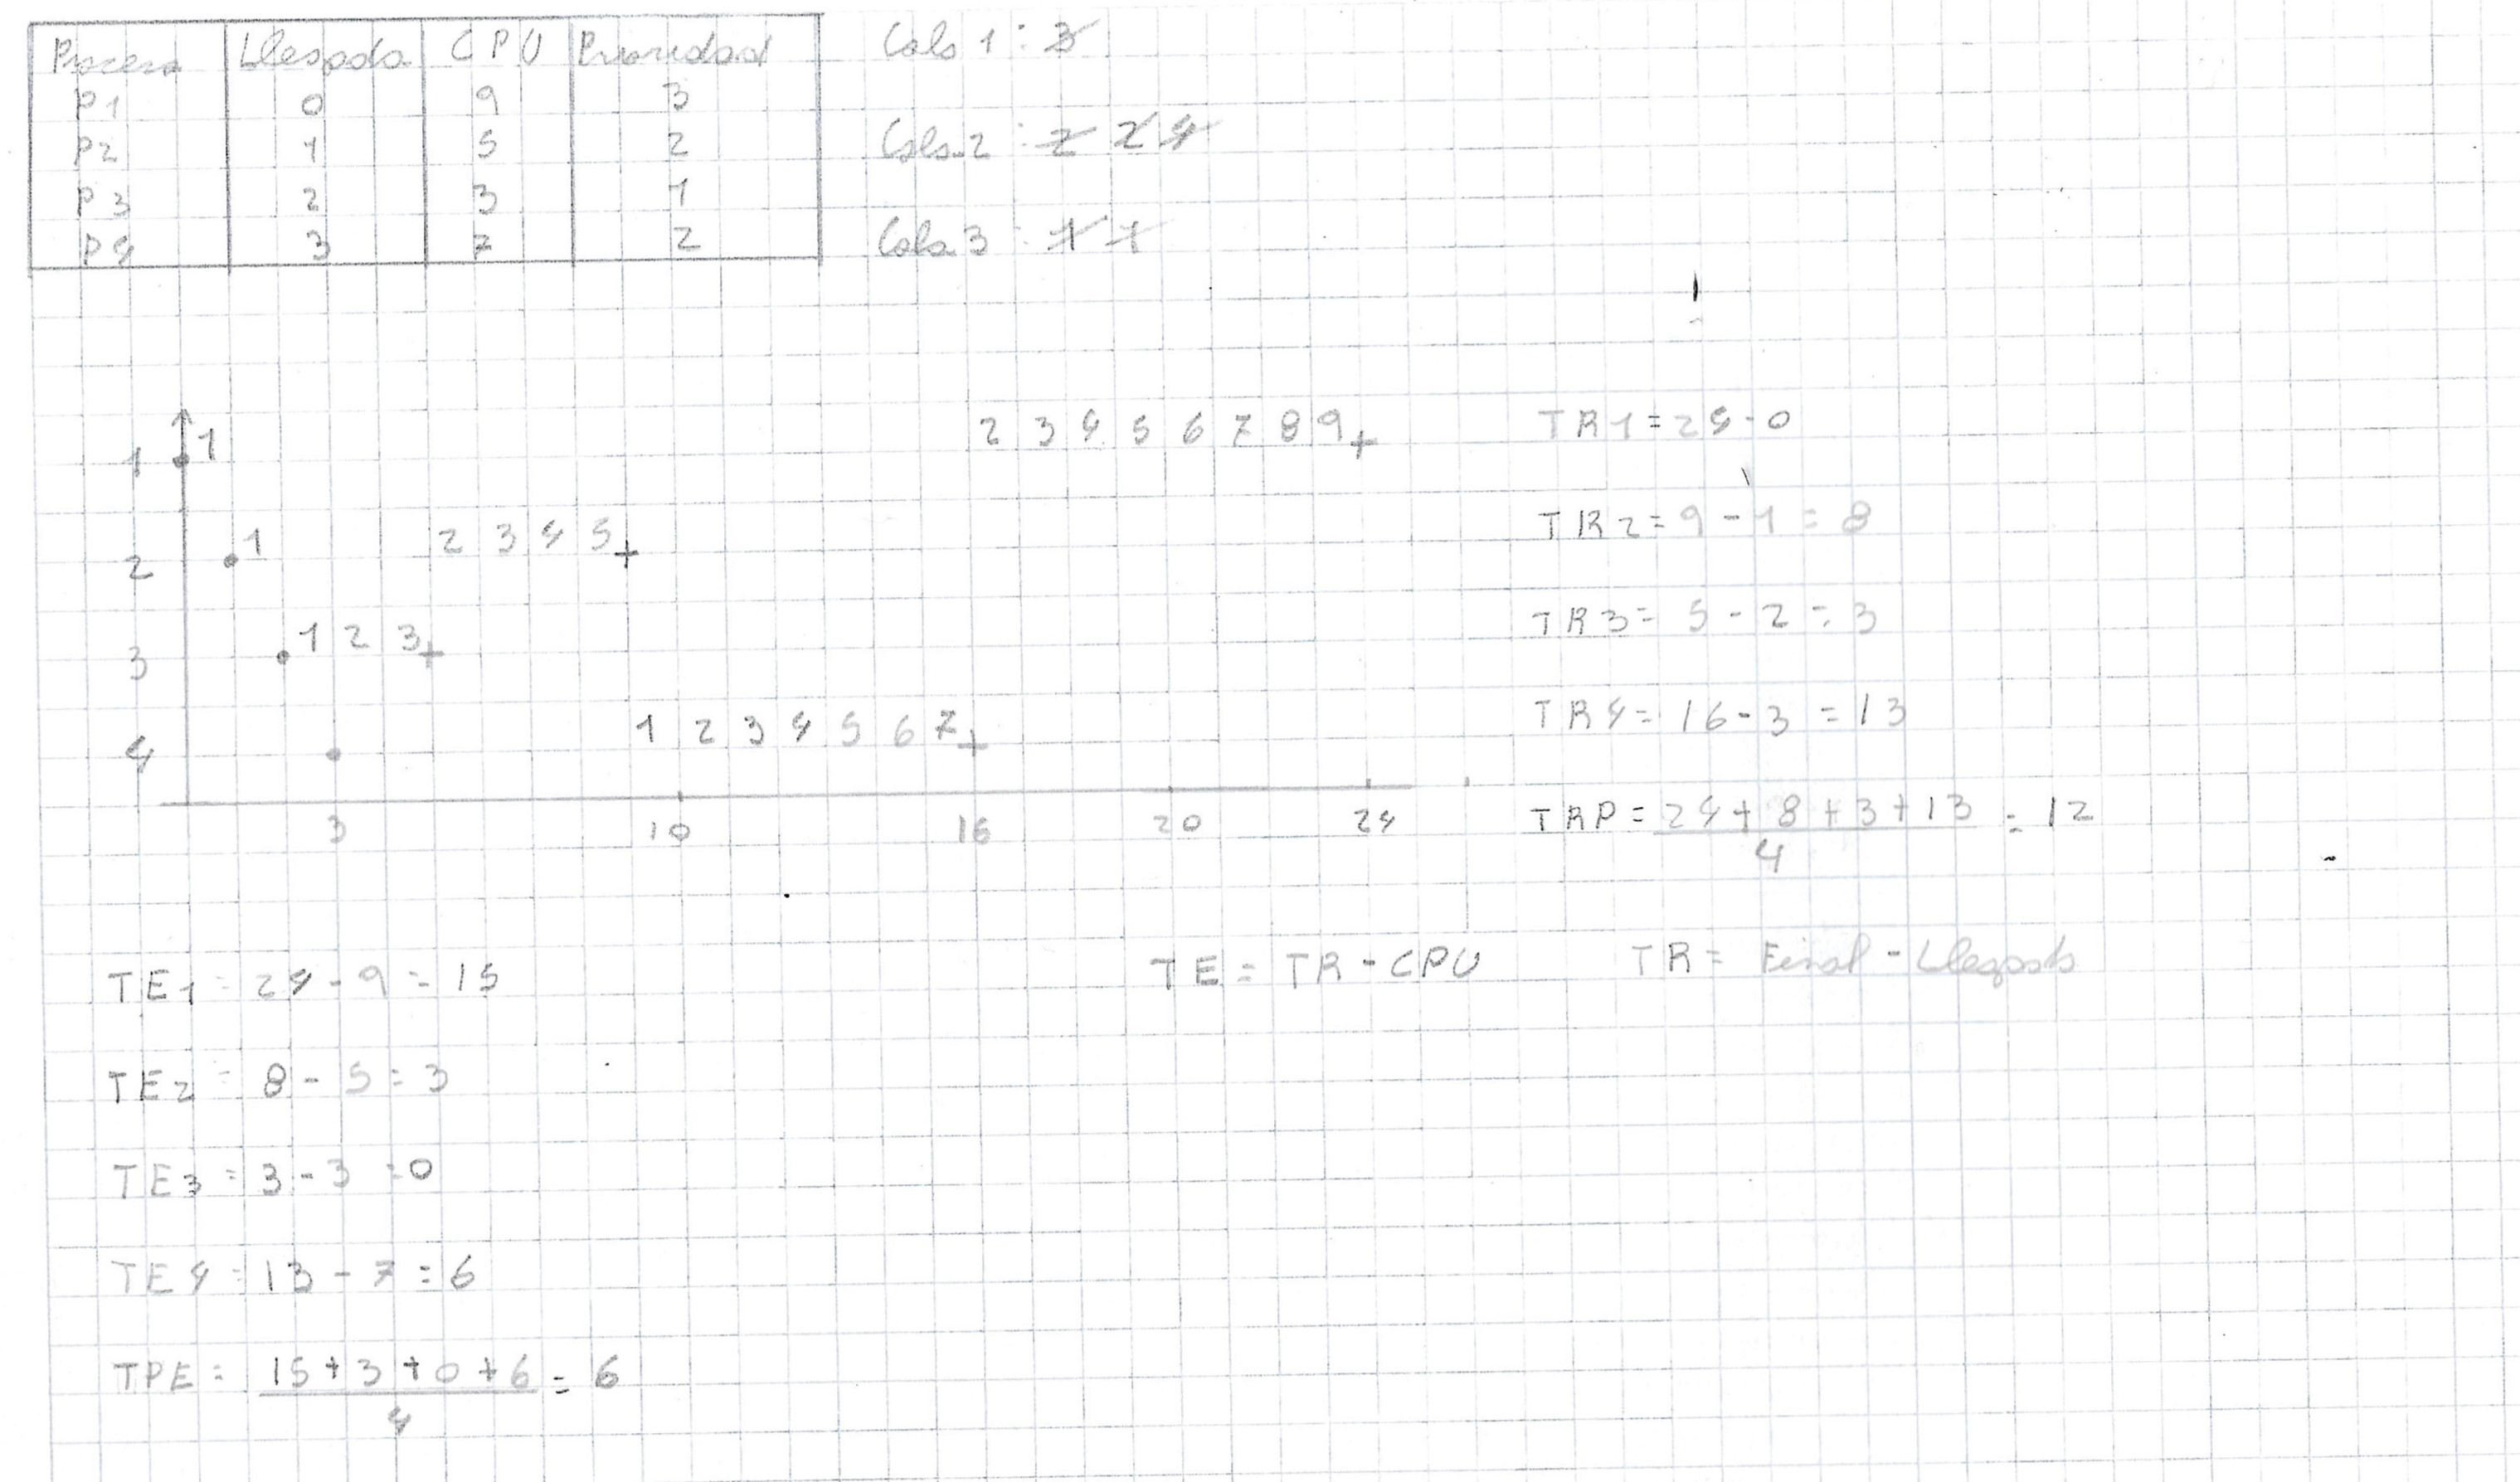 Proceso Llegada CPU Prioridad
P1 0 9 3
P2 1 5 2
P3 2 3 1
P4 3 7 2
Cola 1 : 3
Cola 2 : 2 2 4
Cola 3 : 1 1
1 1 2 3 4 5 6 7 8 9
2 1 2 3 4 5
3 1 2 3
4 1 2 3 4 5 6 7
3 10 16 20 24
TR1 = 24 - 0
TR2 = 9 - 1 = 8
TR3 = 5 - 2 = 3
TR4 = 16 - 3 = 13
TRP = 24 + 8 + 3 + 13 = 12
4
TE = TR - CPU TR = Final - Llegada
TE1 = 24 - 9 = 15
TE2 = 8 - 5 = 3
TE3 = 3 - 3 = 0
TE4 = 13 - 7 = 6
TPE = 15 + 3 + 0 + 6 = 6
4